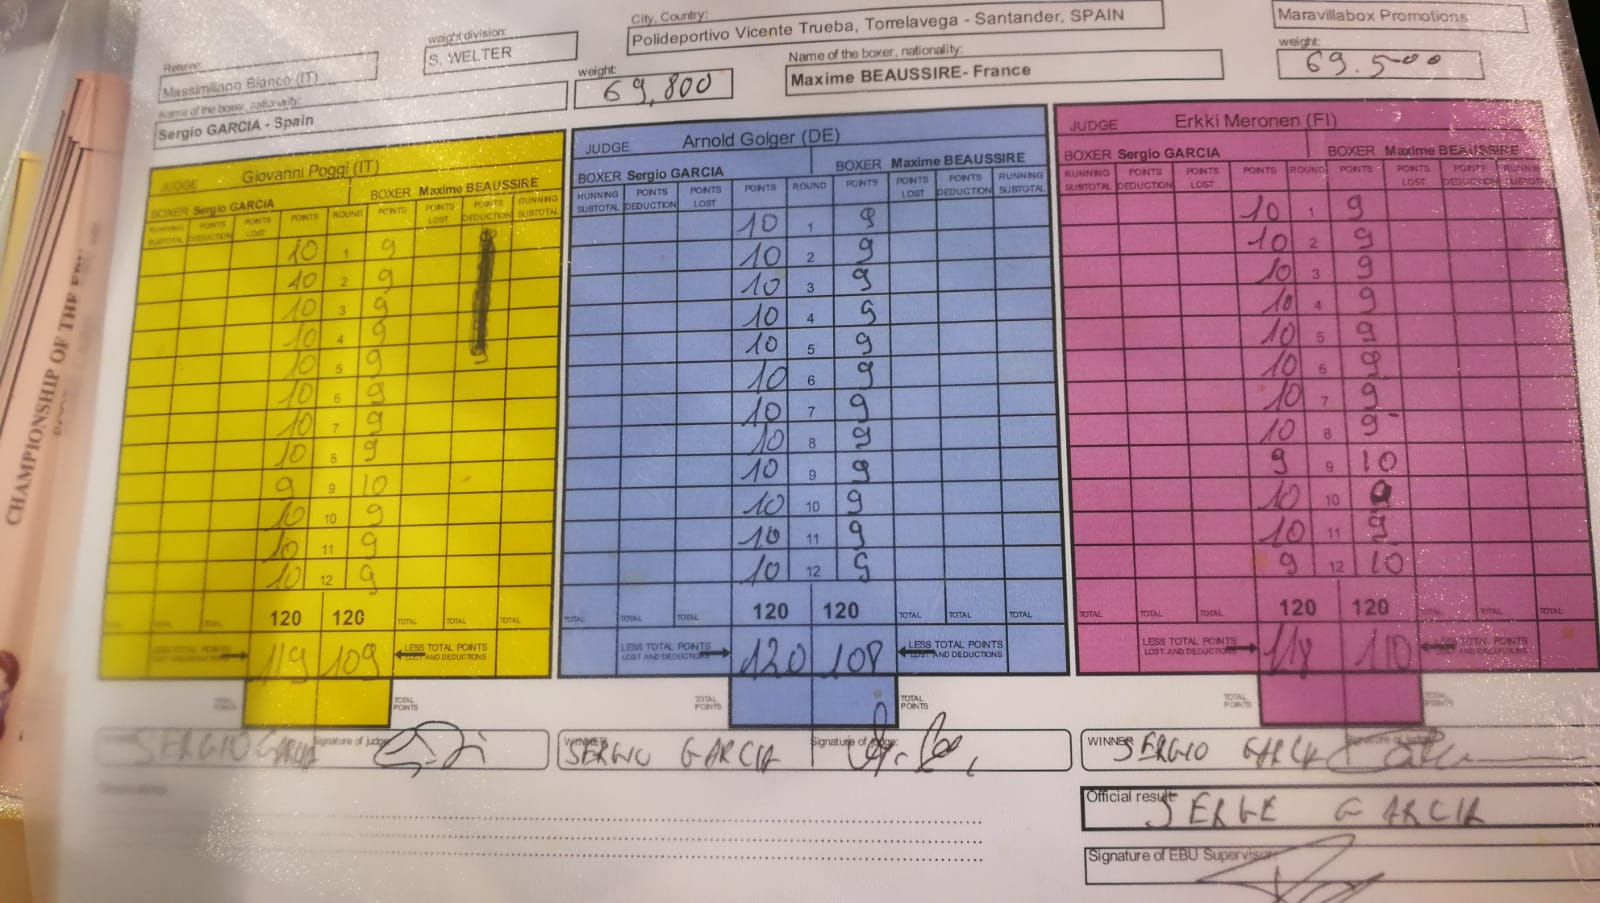 CHAMPIONSHIP OF THE
Referee:
Massimiliano Bianco (IT)
weight division:
S. WELTER
City, Country:
Polideportivo Vicente Trueba, Torrelavega - Santander, SPAIN
Maravillabox Promotions
Name of the boxer, nationality:
Sergio GARCIA - Spain
weight:
69,800
Name of the boxer, nationality:
Maxime BEAUSSIRE- France
weight:
69.500
JUDGE Giovanni Poggi (IT)
BOXER Sergio GARCIA BOXER Maxime BEAUSSIRE
RUNNING SUBTOTAL POINTS DEDUCTION POINTS LOST POINTS ROUND POINTS POINTS LOST POINTS DEDUCTION RUNNING SUBTOTAL
10 1 9
10 2 9
10 3 9
10 4 9
10 5 9
10 6 9
10 7 9
10 8 9
9 9 10
10 10 9
10 11 9
10 12 9
120 120 TOTAL TOTAL TOTAL
LESS TOTAL POINTS LOST AND DEDUCTIONS 119 109 LESS TOTAL POINTS LOST AND DEDUCTIONS
TOTAL POINTS TOTAL POINTS
SERGIO GARCIA Signature of judge:
JUDGE Arnold Golger (DE)
BOXER Sergio GARCIA BOXER Maxime BEAUSSIRE
RUNNING SUBTOTAL POINTS DEDUCTION POINTS LOST POINTS ROUND POINTS POINTS LOST POINTS DEDUCTION RUNNING SUBTOTAL
10 1 9
10 2 9
10 3 9
10 4 9
10 5 9
10 6 9
10 7 9
10 8 9
10 9 9
10 10 9
10 11 9
10 12 9
TOTAL TOTAL TOTAL 120 120 TOTAL TOTAL TOTAL
LESS TOTAL POINTS LOST AND DEDUCTIONS 120 108 LESS TOTAL POINTS LOST AND DEDUCTIONS
TOTAL POINTS TOTAL POINTS
WINNER SERGIO GARCIA Signature of judge:
JUDGE Erkki Meronen (FI)
BOXER Sergio GARCIA BOXER Maxime BEAUSSIRE
RUNNING SUBTOTAL POINTS DEDUCTION POINTS LOST POINTS ROUND POINTS POINTS LOST POINTS DEDUCTION RUNNING SUBTOTAL
10 1 9
10 2 9
10 3 9
10 4 9
10 5 9
10 6 9
10 7 9
10 8 9
9 9 10
10 10 9
10 11 9
9 12 10
TOTAL TOTAL TOTAL 120 120 TOTAL TOTAL TOTAL
LESS TOTAL POINTS LOST AND DEDUCTIONS 118 110 LESS TOTAL POINTS LOST AND DEDUCTIONS
TOTAL POINTS TOTAL POINTS
WINNER SERGIO GARCIA Signature of judge:
Official result SERGE GARCIA
Signature of EBU Supervisor: